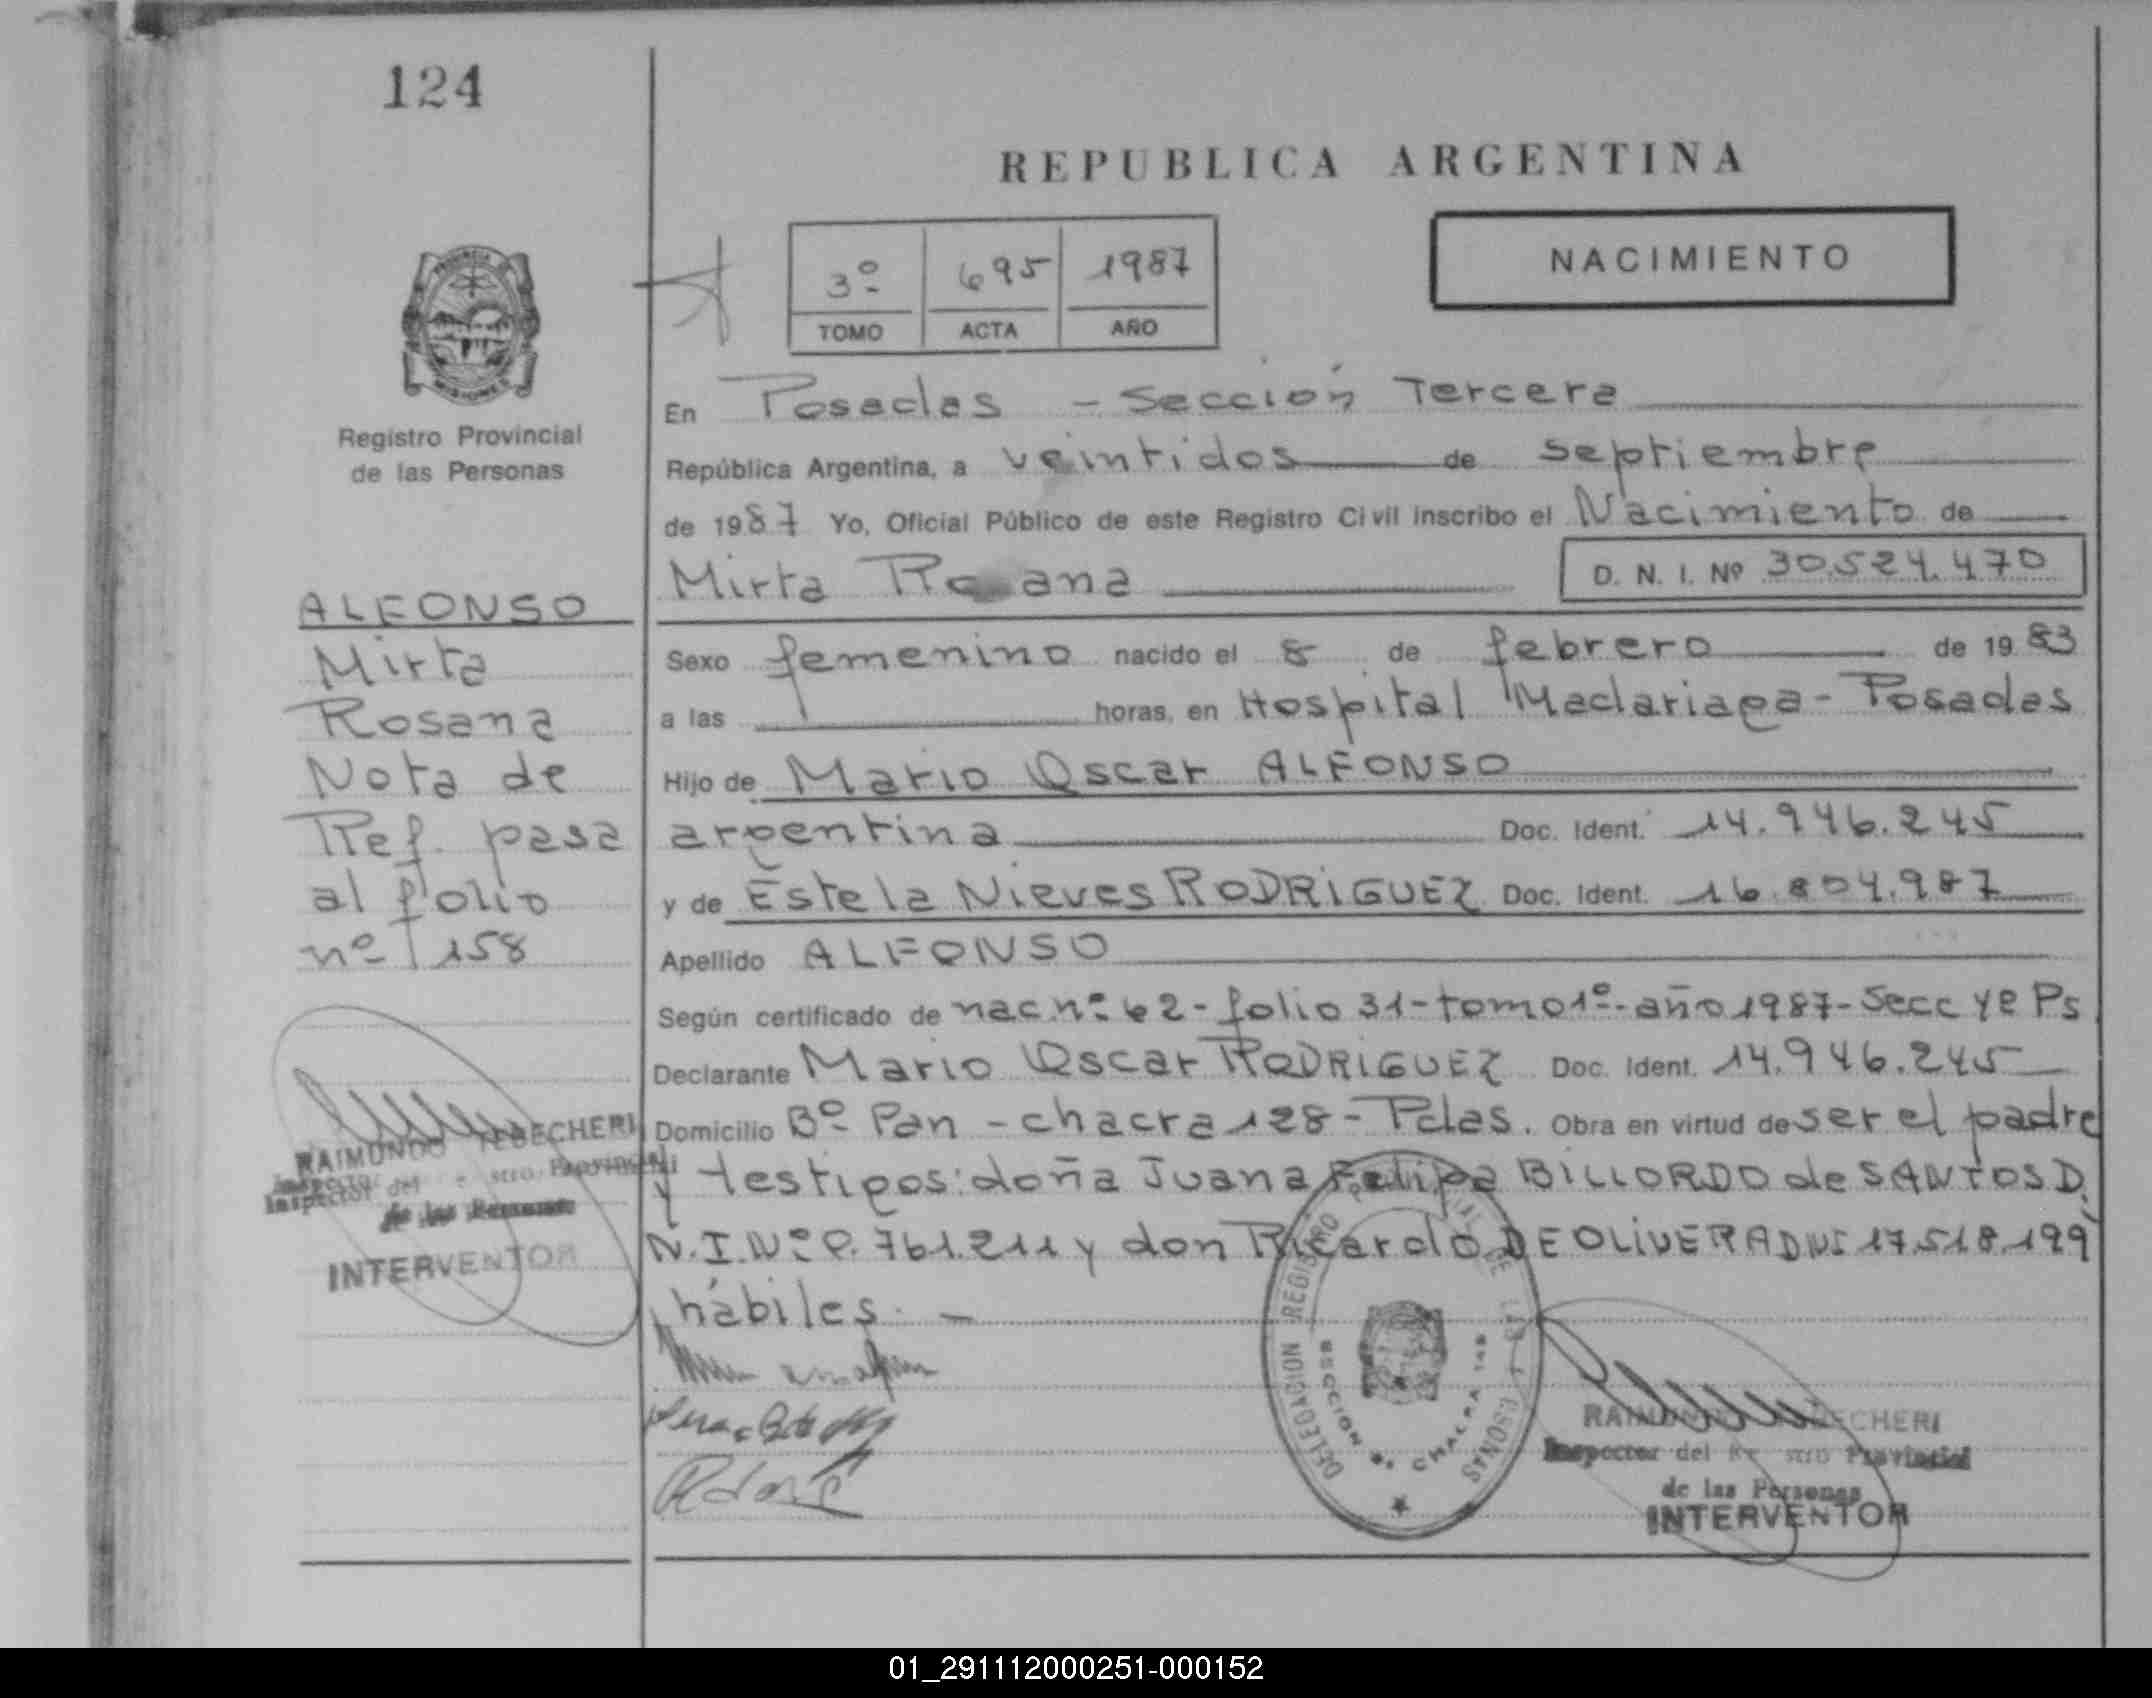 124
REPUBLICA ARGENTINA
3º 695 1987
TOMO ACTA AÑO
NACIMIENTO
Registro Provincial
de las Personas
En Posadas - Sección Tercera
República Argentina, a veintidos de septiembre
de 1987 Yo, Oficial Público de este Registro Civil inscribo el Nacimiento de
Mirta Rosana D. N. I. Nº 30.524.470
ALFONSO
Mirta
Rosana
Nota de
Ref. pasa
al folio
nº 158
Sexo femenino nacido el 8 de febrero de 1983
a las horas, en Hospital Madariaga - Posadas
Hijo de Mario Oscar ALFONSO
argentina Doc. Ident. 14.946.245
y de Estela Nieves RODRIGUEZ Doc. Ident. 16.804.987
Apellido ALFONSO
Según certificado de nac. nº 62 - folio 31 - tomo 1º - año 1987 - Secc Ps
Declarante Mario Oscar RODRIGUEZ Doc. Ident. 14.946.245
Domicilio Bº Pan - chacra 128 - Pdas. Obra en virtud de ser el padre
y testigos: doña Juana Felipa BILLORDO de SANTOS D.
N.I. Nº 761.211 y don Ricardo DE OLIVERA DNI 17.518.199
hábiles. -
RAIMUNDO TEBECHERI
Inspector del Provincial
de las Personas
INTERVENTOR
DELEGACION REGISTRO PROVINCIAL DE LAS PERSONAS
SECCION 3ª CHACRA 145
RAIMUNDO TEBECHERI
Inspector del Provincial
de las Personas
INTERVENTOR
01_291112000251-000152